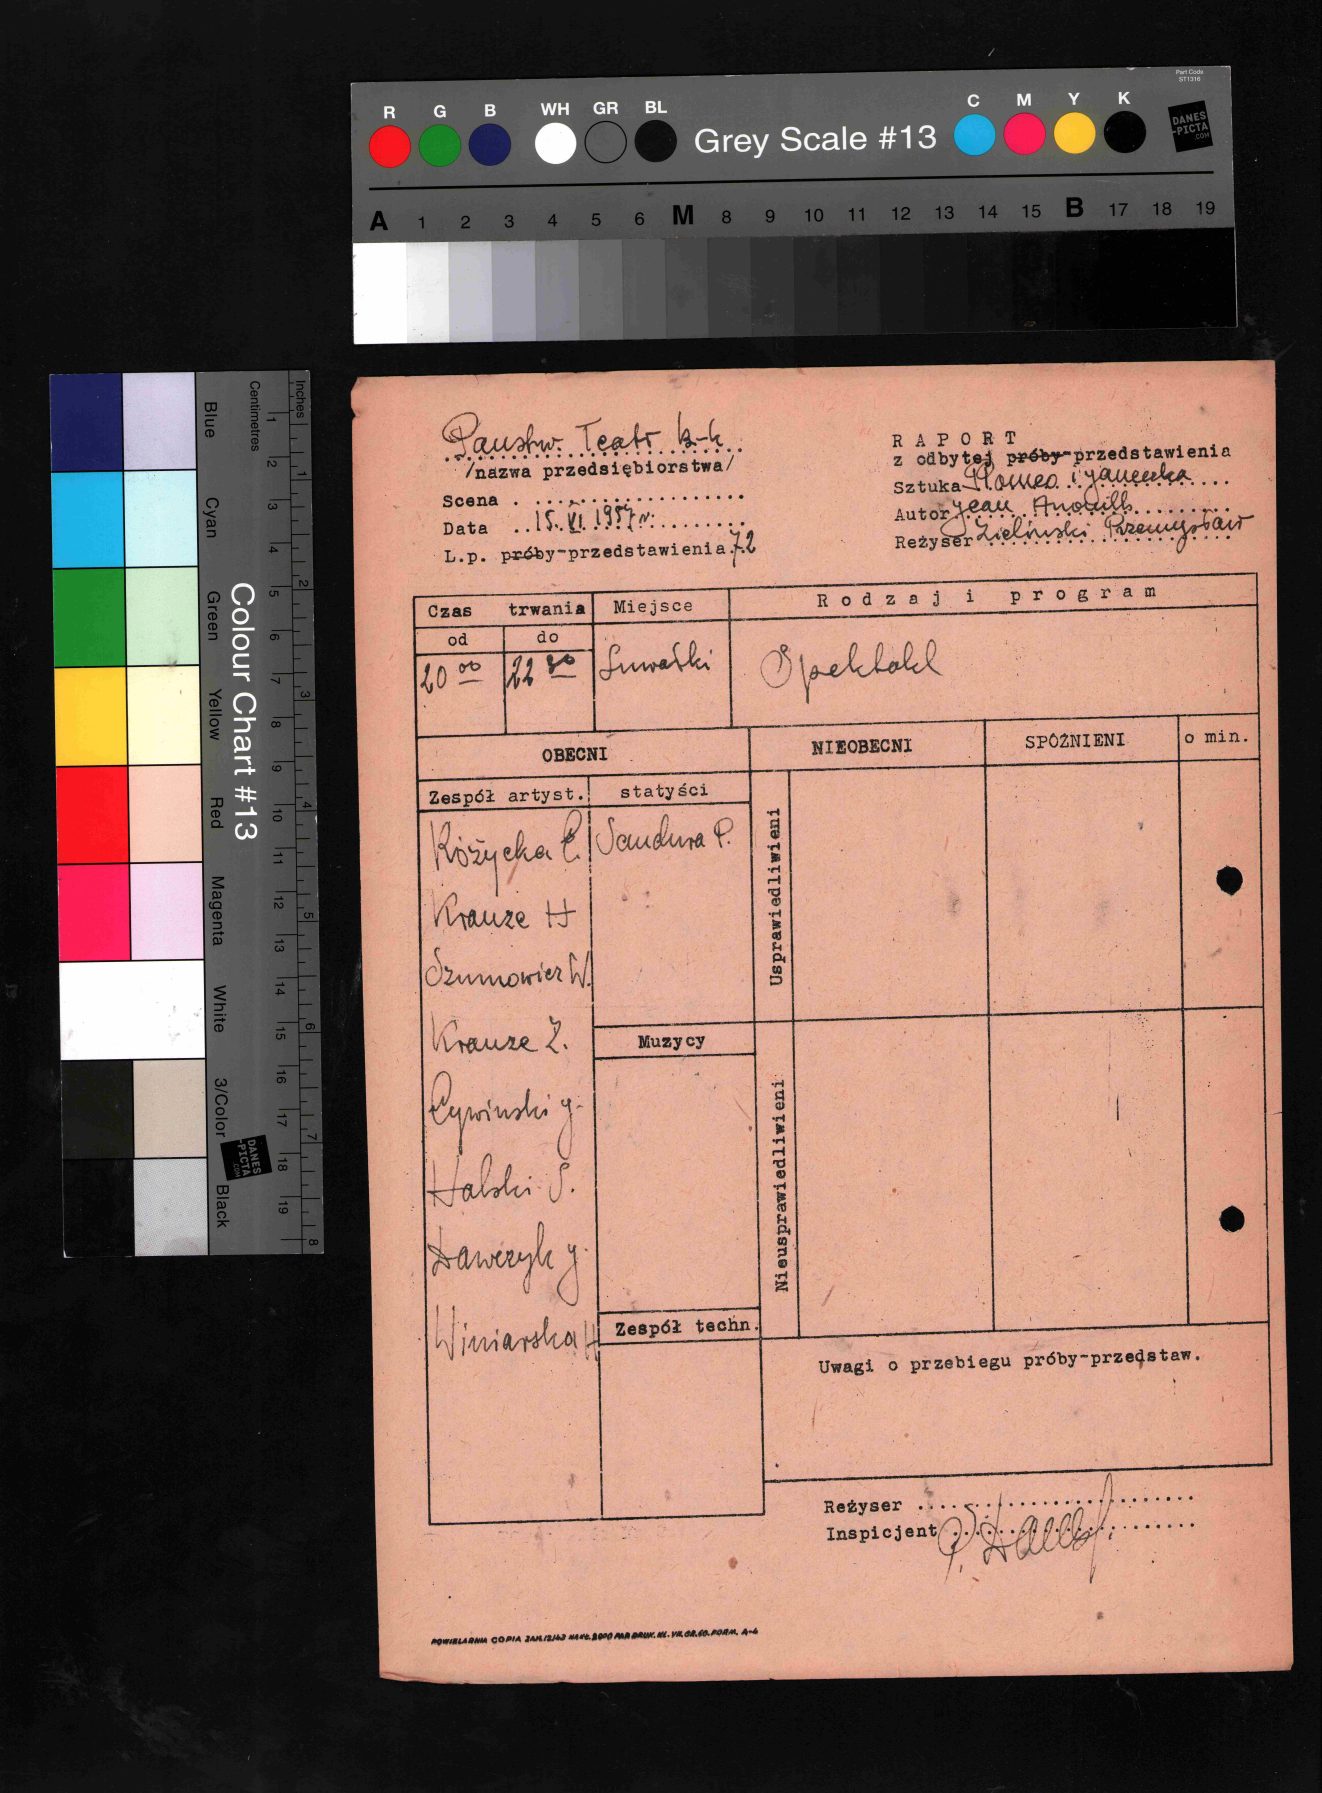 Part Code
ST1316
R G B WH GR BL Grey Scale #13 C M Y K
DANES
-PICTA
.COM
A 1 2 3 4 5 6 M 8 9 10 11 12 13 14 15 B 17 18 19
Colour Chart #13
Blue
Cyan
Green
Yellow
Red
Magenta
White
3/Color
Black
Centimetres
1 2 3 4 5 6 7 8 9 10 11 12 13 14 15 16 17 18 19
Inches
1 2 3 4 5 6 7 8
DANES
-PICTA
.COM
Państw. Teatr
/nazwa przedsiębiorstwa/
Scena
Data 15. VI 1957 r.
L.p. próby-przedstawienia 72
RAPORT
z odbytej próby-przedstawienia
Sztuka Romeo i Janeczka
Autor Jean Anouilh
Reżyser Zieliński Przemysław
Czas trwania
Miejsce
Rodzaj i program
od
do
20 00
22 30
Suwałki
Spektakl
OBECNI
NIEOBECNI
SPÓŹNIENI
o min.
Zespół artyst.
statyści
Różycka C.
Sandura P.
Krauze H
Szumowicz W.
Krauze Z.
Cywiński J.
Halski S.
Ławczyk J.
Winiarska H
Muzycy
Zespół techn.
Usprawiedliwieni
Nieusprawiedliwieni
Uwagi o przebiegu próby-przedstaw.
Reżyser
Inspicjent
POWIELARNIA COPIA ZAM.